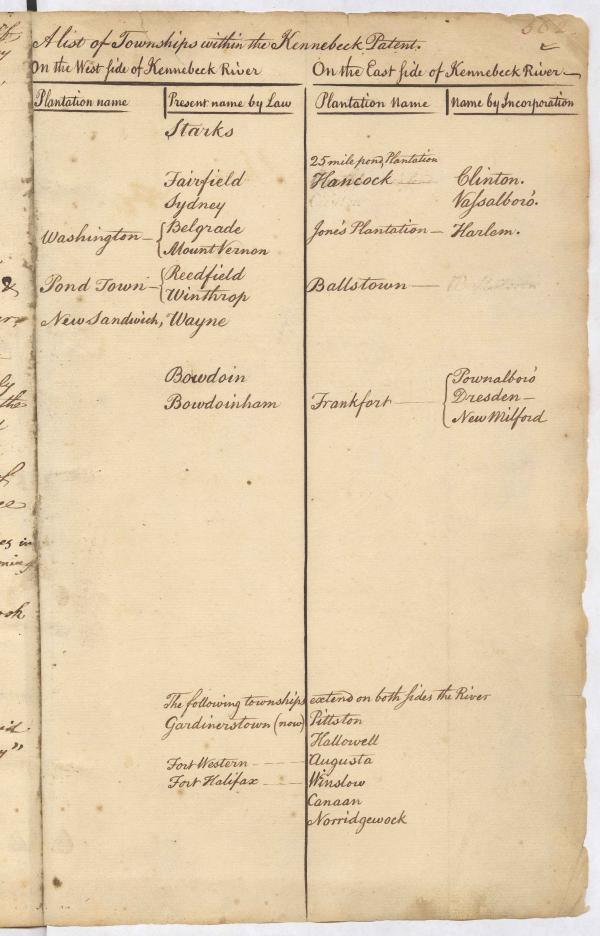 A list of Townships within the Kennebeck Patent.
On the West side of Kennebeck River
On the East side of Kennebeck River
Plantation name
Present name by Law
Plantation Name
Name by Incorporation
Starks
25 mile pond, Plantation
Fairfield
Hancock
Clinton.
Sydney
Vassalboro'.
Washington — { Belgrade
Mount Vernon
Jone's Plantation — Harlem.
Pond Town — { Reedfield
Winthrop
Ballstown
New Sandwich, Wayne
Bowdoin
Bowdoinham
Frankfort — { Pownalboro'
Dresden —
New Milford
The following townships extend on both sides the River
Gardinerstown (now) Pittston
Hallowell
Fort Western - - - Augusta
Fort Halifax - - - Winslow
Canaan
Norridgewock